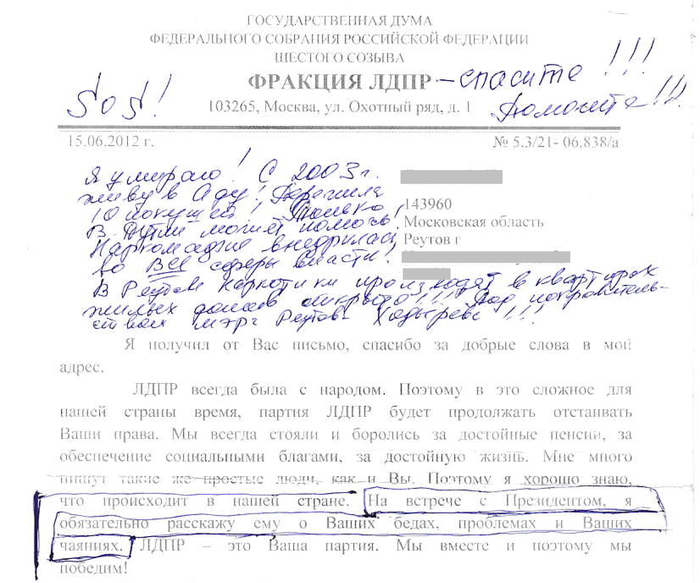 ГОСУДАРСТВЕННАЯ ДУМА
ФЕДЕРАЛЬНОГО СОБРАНИЯ РОССИЙСКОЙ ФЕДЕРАЦИИ
ШЕСТОГО СОЗЫВА
ФРАКЦИЯ ЛДПР – спасите !!!
SOS!
103265, Москва, ул. Охотный ряд, д. 1
Помогите!!!
15.06.2012 г.
№ 5.3/21- 06.838/а
Я умираю! С 2003 г.
живу в Аду!
10 покушений! Только
В Путин может помочь!
Наркомафия внедрилась
во все сферы власти!
143960
Московская область
Реутов г
В Реутове Наркотики производят в квартирах
жилых домов открыто!!! Под покровитель-
ством мэра Реутова Ходырева !!!
Я получил от Вас письмо, спасибо за добрые слова в мой
адрес.
ЛДПР всегда была с народом. Поэтому в это сложное для
нашей страны время, партия ЛДПР будет продолжать отстаивать
Ваши права. Мы всегда стояли и боролись за достойные пенсии, за
обеспечение социальными благами, за достойную жизнь. Мне много
пишут такие же простые люди, как и Вы. Поэтому я хорошо знаю,
что происходит в нашей стране. На встрече с Президентом, я
обязательно расскажу ему о Ваших бедах, проблемах и Ваших
чаяниях. ЛДПР – это Ваша партия. Мы вместе и поэтому мы
победим!